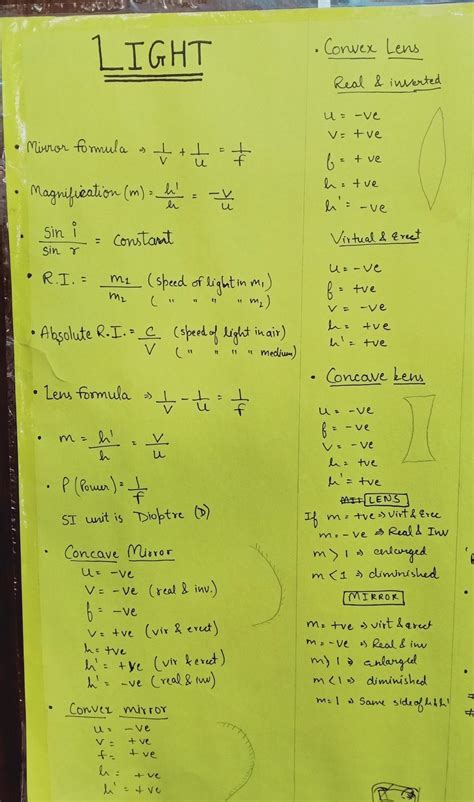 LIGHT
• Mirror formula ⇒ 1/v + 1/u = 1/f
• Magnification (m) = h'/h = -v/u
sin i / sin r = constant
• R.I. = m1/m2 (speed of light in m1)
( " " " " m2)
• Absolute R.I. = c/v (speed of light in air)
( " " " " medium)
• Lens formula ⇒ 1/v - 1/u = 1/f
• m = h'/h = v/u
• P (Power) = 1/f
SI unit is Dioptre (D)
• Concave Mirror
u = -ve
v = -ve (real & inv.)
f = -ve
v = +ve (vir & erect)
h = +ve
h' = +ve (vir & erect)
h' = -ve (real & inv)
• Convex mirror
u = -ve
v = +ve
f = +ve
h = +ve
h' = +ve
• Convex Lens
Real & inverted
u = -ve
v = +ve
f = +ve
h = +ve
h' = -ve
Virtual & Erect
u = -ve
f = +ve
v = -ve
h = +ve
h' = +ve
• Concave Lens
u = -ve
f = -ve
v = -ve
h = +ve
h' = +ve
LENS
If m = +ve ⇒ virt & Erec
m = -ve ⇒ Real & Inv
m > 1 ⇒ enlarged
m < 1 ⇒ diminished
MIRROR
m = +ve ⇒ virt & erect
m = -ve ⇒ Real & inv
m > 1 ⇒ enlarged
m < 1 ⇒ diminished
m = 1 ⇒ Same side of h & h'